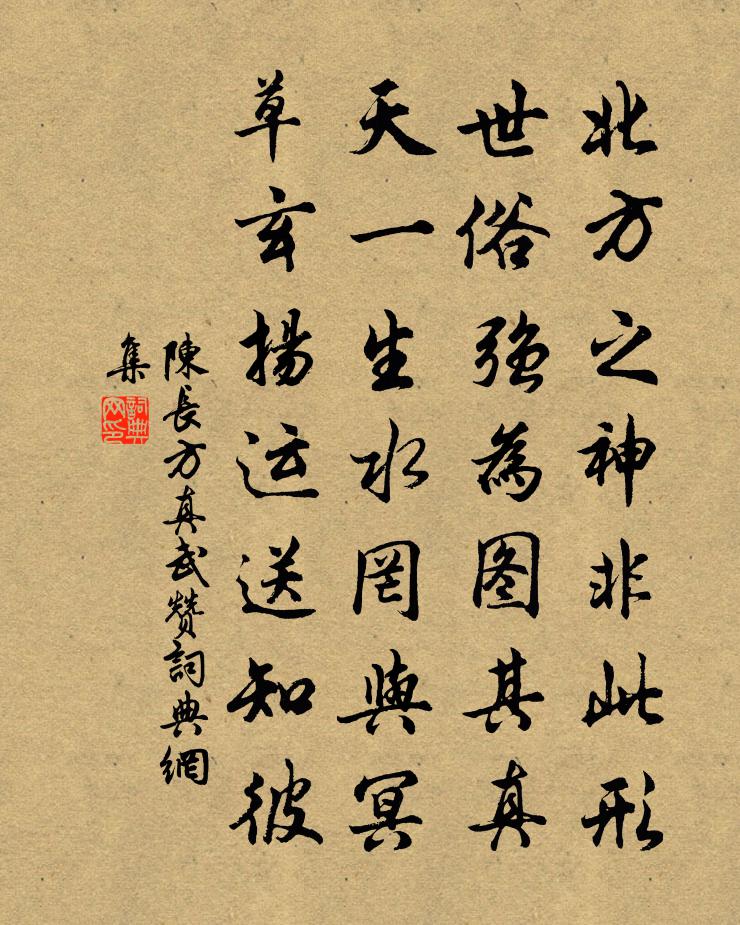 北方之神非此形
世俗強為图其真
天一生水罔與冥
草玄揚运送知彼
陳長方真武贊詞典網
集
詞典网印